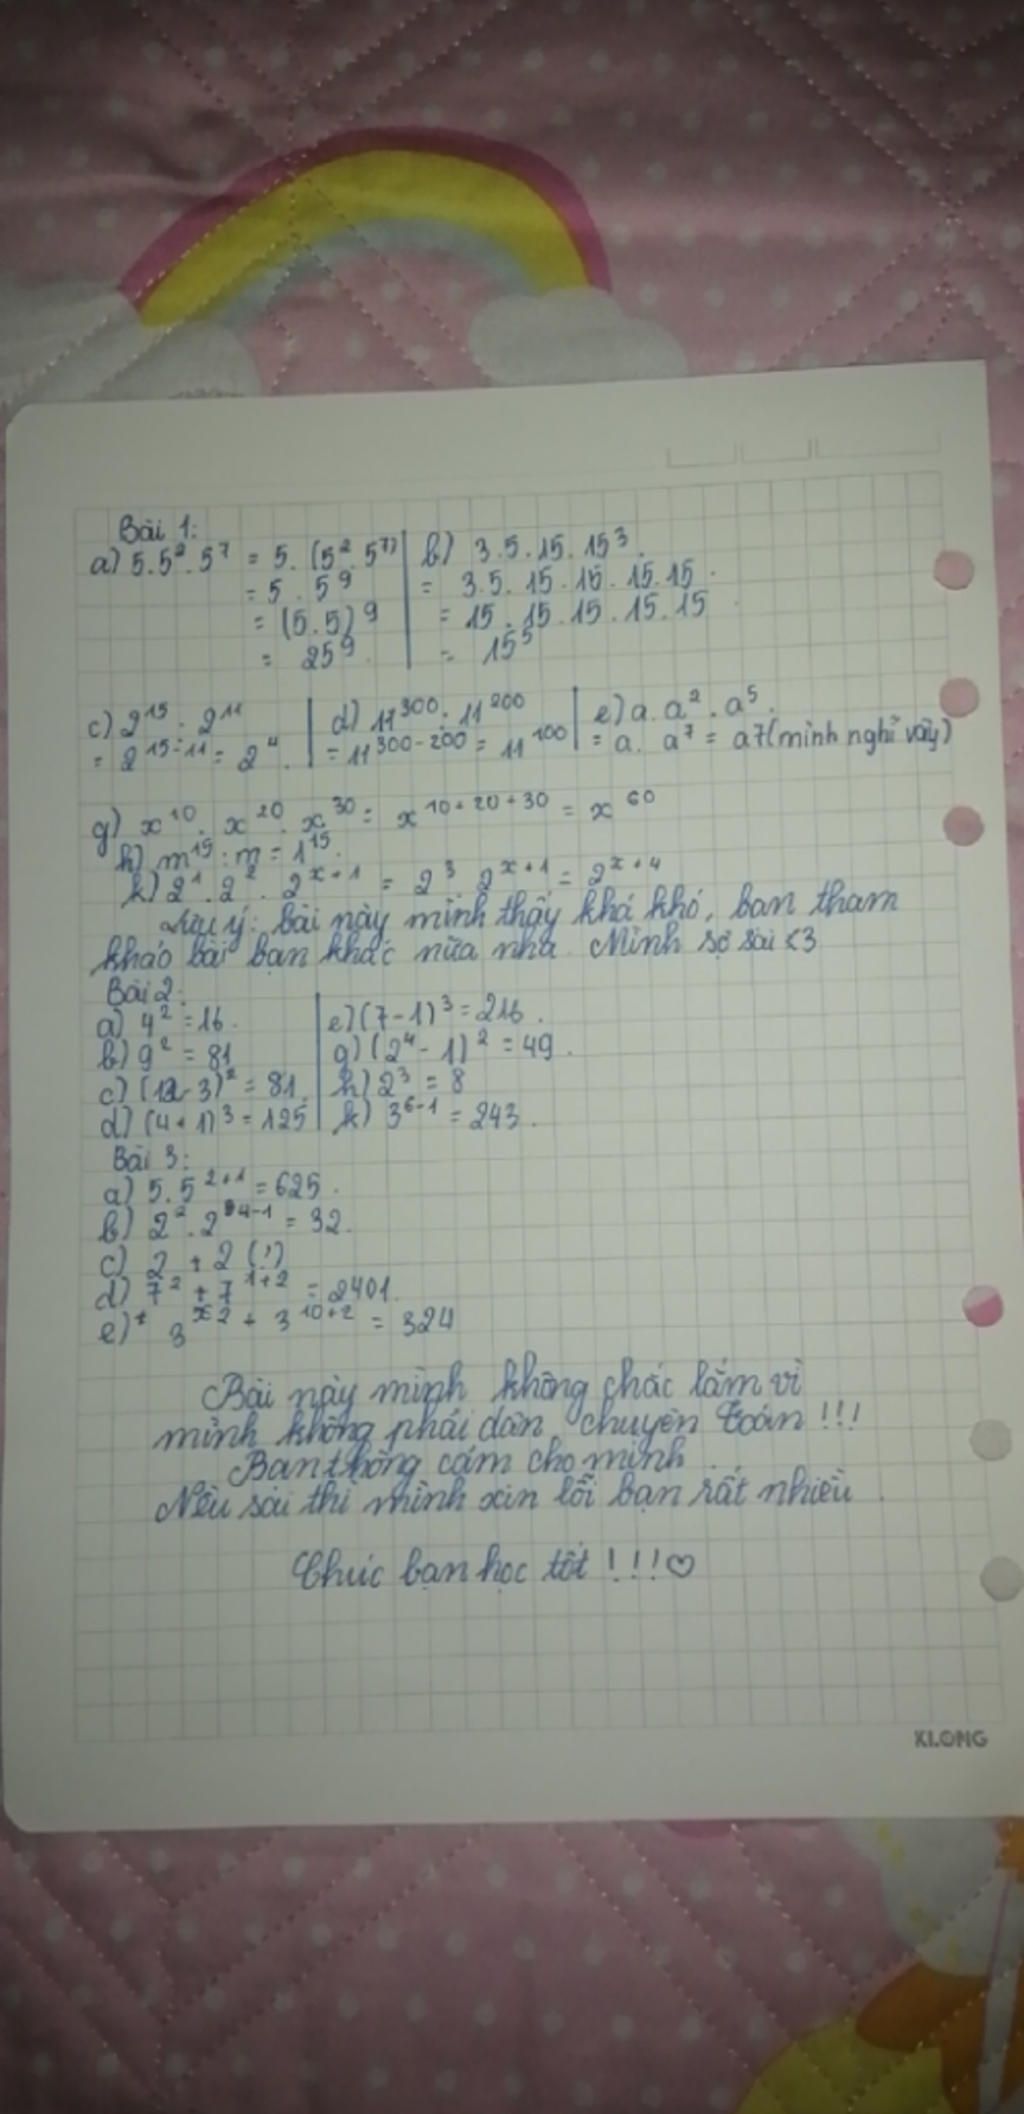 Bài 1:
a) 5.5² . 5⁷ = 5. (5² . 5⁷)
= 5 . 5⁹
= (5.5)⁹
= 25⁹.
b) 3.5.15. 15³.
= 3.5. 15 . 15 . 15 . 15 .
= 15 . 15 . 15 . 15 . 15
= 15⁵
c) 2¹⁵ : 2¹¹
= 2¹⁵⁻¹¹ = 2⁴.
d) 11³⁰⁰ : 11²⁰⁰
= 11³⁰⁰⁻²⁰⁰ = 11¹⁰⁰
e) a. a² . a⁵.
= a. a⁷ = a7 (mình nghĩ vậy)
g) x¹⁰ . x²⁰ . x³⁰ = x¹⁰⁺²⁰⁺³⁰ = x⁶⁰
h) m¹⁵ : m = 1¹⁵.
k) 2¹ . 2² . 2ˣ⁺¹ = 2³ . 2ˣ⁺¹ = 2ˣ⁺⁴
Lưu ý: bài này mình thấy khá khó, bạn tham
khảo bài bạn khác nữa nha. Mình sợ sai <3
Bài 2:
a) 4² = 16.
b) 9² = 81
c) (12-3)² = 81.
d) (4+1)³ = 125
e) (7-1)³ = 216.
g) (2⁴ - 1)² = 49.
h) 2³ = 8
k) 3⁶⁻¹ = 243.
Bài 3:
a) 5. 5²⁺¹ = 625.
b) 2² . 2⁴⁻¹ = 32.
c) 2 + 2 (?)
d) 7² + 7¹⁺² = 2401.
e) 3ˣ² + 3¹⁰⁺² = 324
Bài này mình không chắc lắm vì
mình không phải dân chuyên toán !!!
Bạn thông cảm cho mình.
Nếu sai thì mình xin lỗi bạn rất nhiều.
Chúc bạn học tốt !!!♡
KLONG